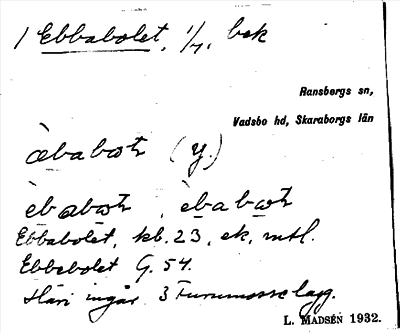 1 Ebbabolet, 1/4, bek
Ransbergs sn,
Vadsbo hd, Skaraborgs län
(y.)
Ebbabolet, kb. 23, ek, mtl.
Ebbebolet G. 54.
Häri ingår 3 Furumosselägg.
L. MADSÉN 1932.